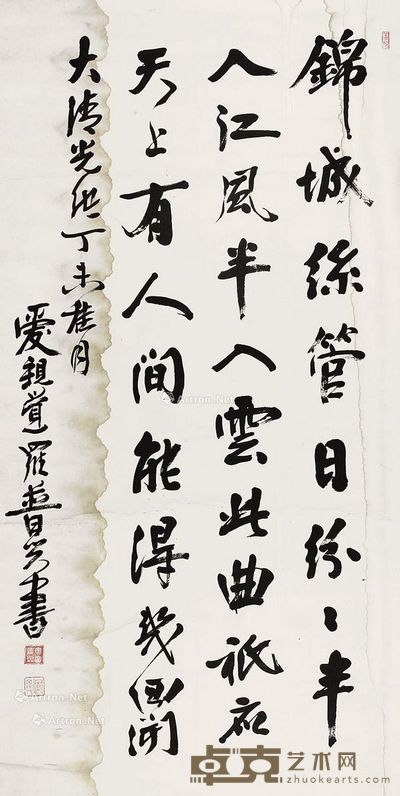 錦城絲管日紛〻半
入江風半入雲此曲祇應
天上有人間能得幾回聞
大清光緒丁未桂月
愛親覺羅普 書
Artron.Net
Artron.Net
Artron.Net
Artron.Net
卓克艺术网
zhuokearts.com